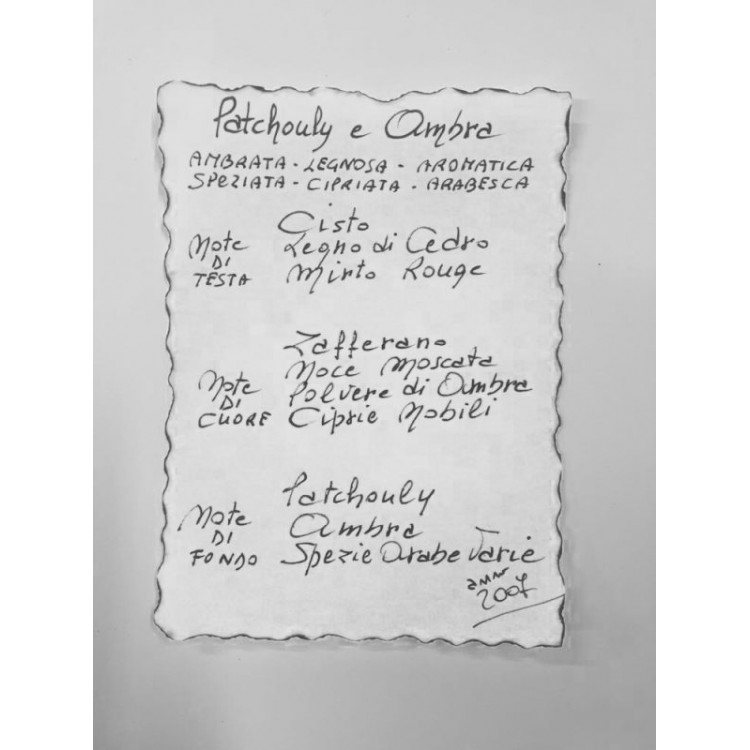 Patchouly e Ambra
AMBRATA - LEGNOSA - AROMATICA
SPEZIATA - CIPRIATA - ARABESCA
Note
DI
TESTA
Cisto
Legno di Cedro
Mirto Rouge
Note
DI
CUORE
Zafferano
Noce Moscata
Polvere di Ambra
Ciprie Nobili
Note
DI
FONDO
Patchouly
Ambra
Spezie Arabe Varie
anno
2007